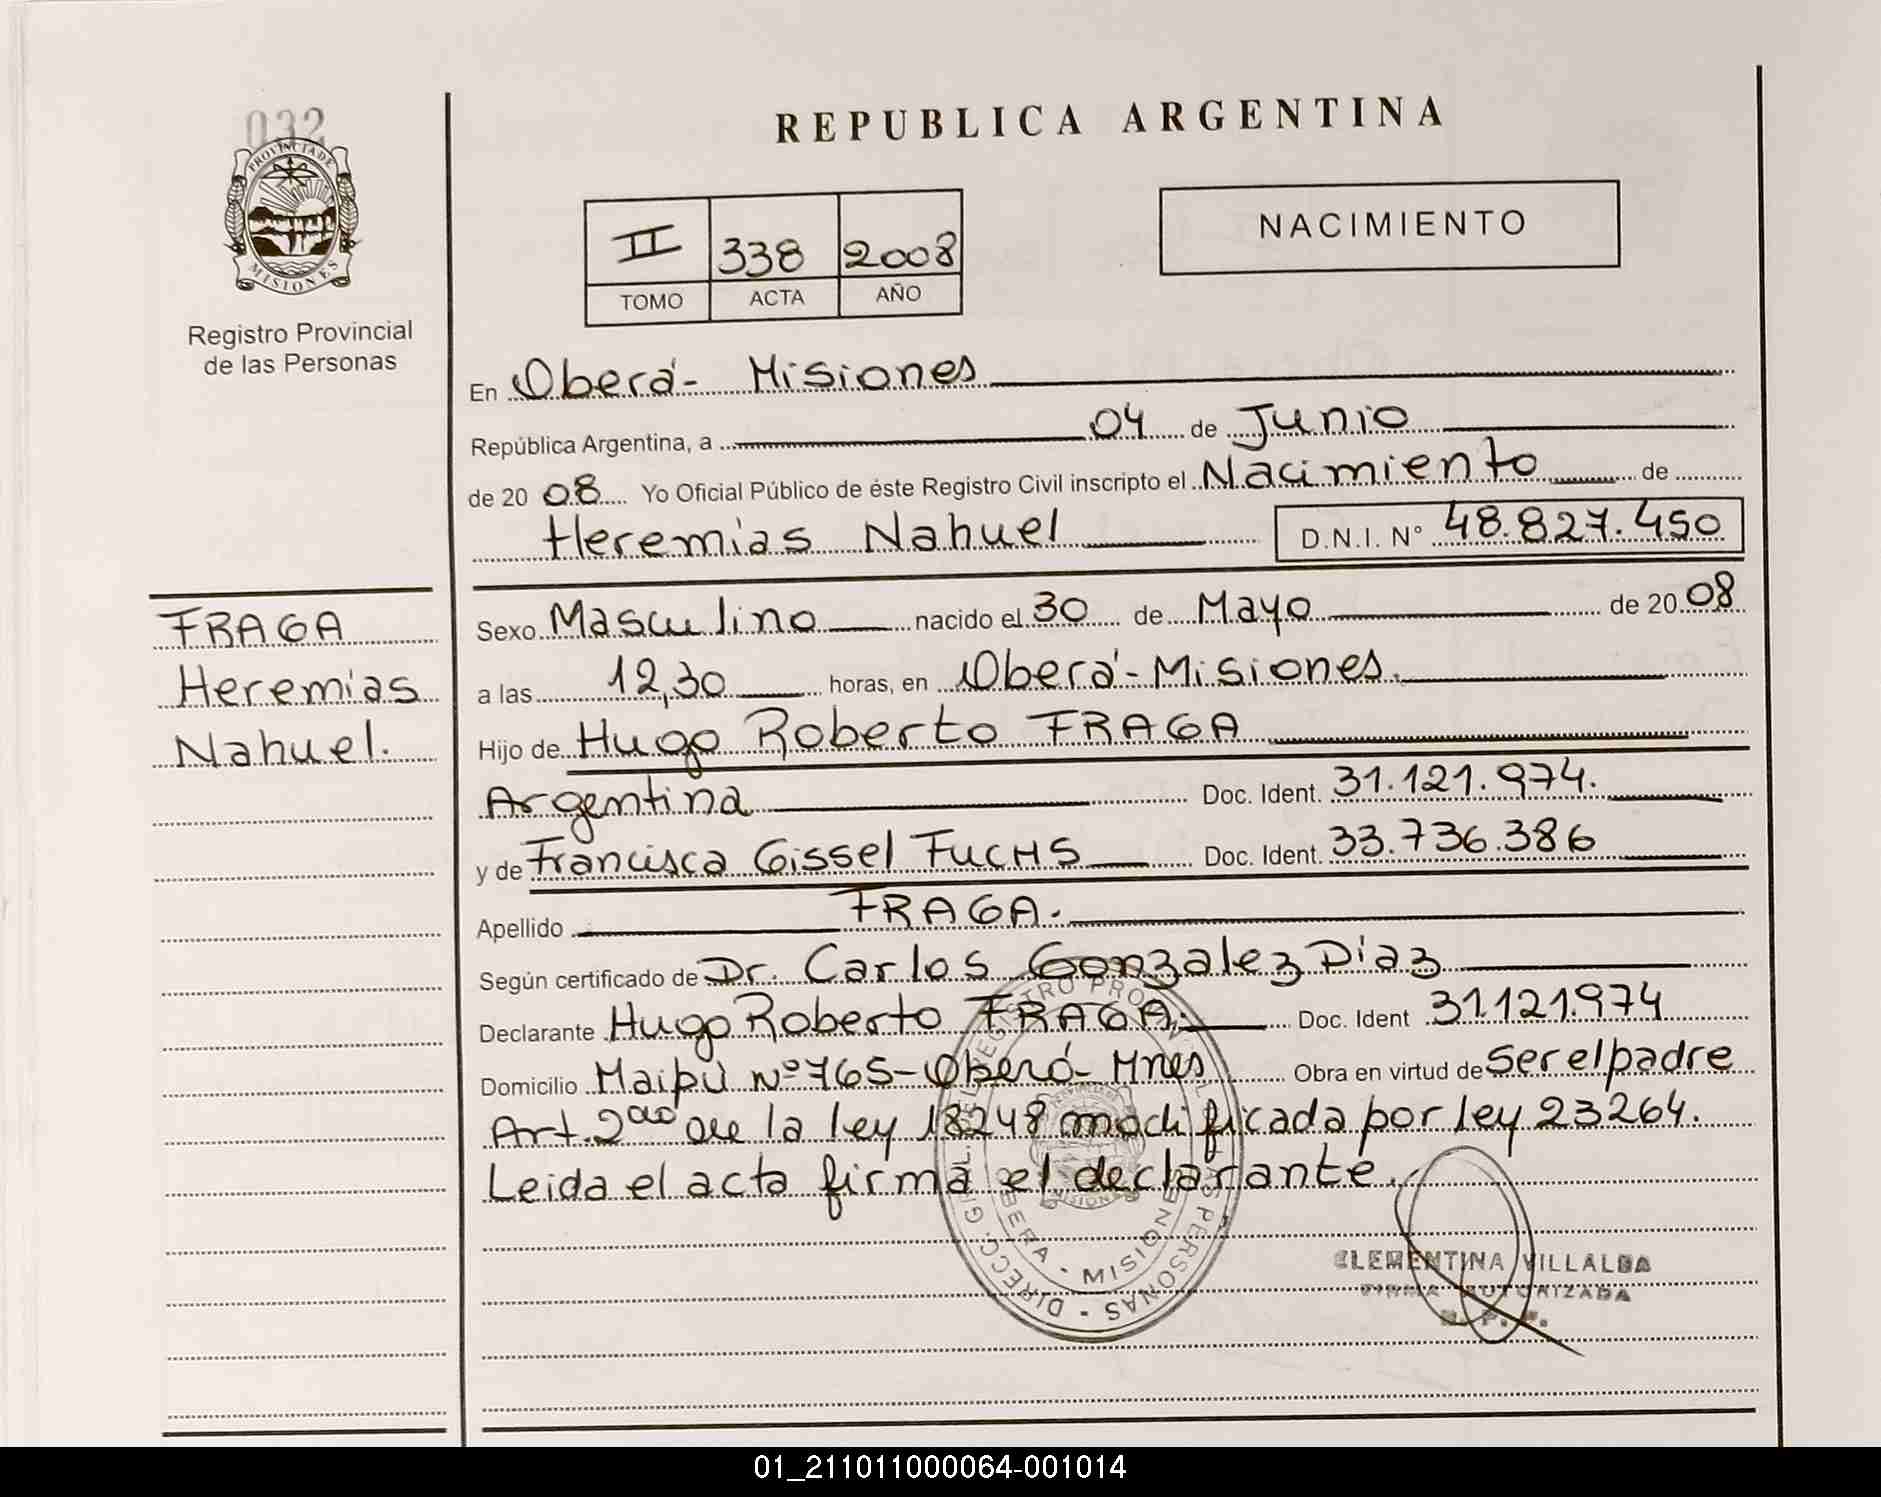 032
PROVINCIA DE
MISIONES
Registro Provincial
de las Personas
REPUBLICA ARGENTINA
II 338 2008
TOMO ACTA AÑO
NACIMIENTO
En Oberá - Misiones
República Argentina, a 04 de Junio
de 20 08 Yo Oficial Público de éste Registro Civil inscripto el Nacimiento de
Heremias Nahuel D.N.I. N° 48.827.450
FRAGA
Heremias
Nahuel.
Sexo Masculino nacido el 30 de Mayo de 20 08
a las 12,30 horas, en Oberá - Misiones.
Hijo de Hugo Roberto FRAGA
Argentina Doc. Ident. 31.121.974.
y de Francisca Gissel FUCHS Doc. Ident. 33.736.386
Apellido FRAGA.
Según certificado de Dr. Carlos Gonzalez Diaz
Declarante Hugo Roberto FRAGA. Doc. Ident 31.121.974
Domicilio Maipú Nº 765 - Oberá - Mnes Obra en virtud de Ser el padre
Art. 2 de la ley 18248 modificada por ley 23264.
Leida el acta firma el declarante.
DIRECC. GRAL. DEL REGISTRO PROVINCIAL DE LAS PERSONAS -
OBERA - MISIONES
CLEMENTINA VILLALBA
FIRMA AUTORIZADA
R. P. P.
01_211011000064-001014